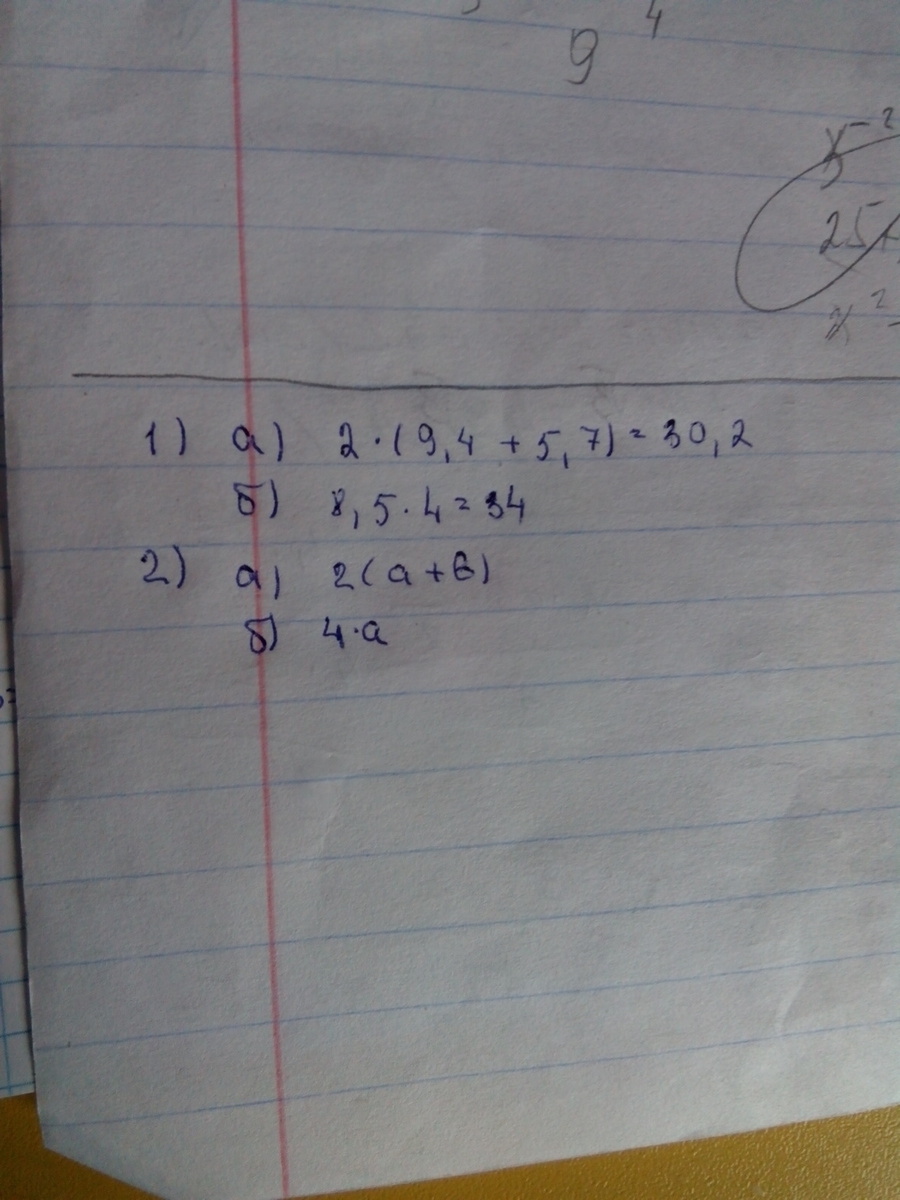 9 4
x⁻²
25
x² -
1) а) 2·(9,4 + 5,7) = 30,2
б) 8,5·4 = 34
2) а) 2(а+в)
б) 4·а